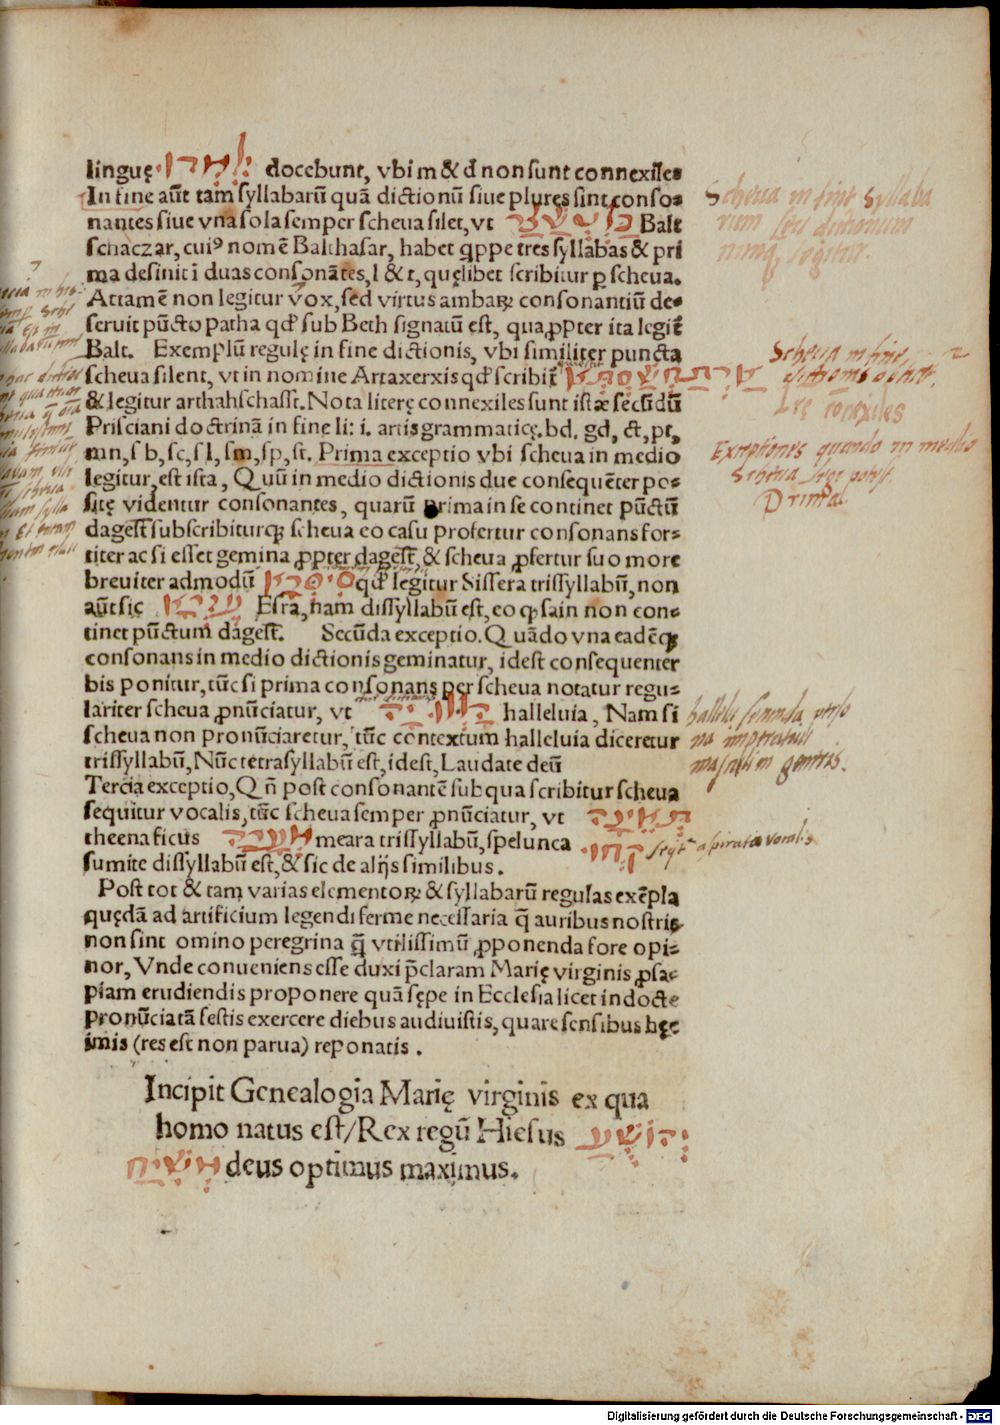 linguę יִלְמְדוּ docebunt, vbi m & d non sunt connexiles
In fine aūt tam syllabarū quā dictionū siue plures sint conso⸗
nantes siue vna sola semper scheua silet, vt בַּלְטְשַׁצַר Balt
schaczar, cuiꝰ nomē Balthasar, habet qppe tres syllabas & pri
ma desinit ī duas consonātes, l & t, quęlibet scribitur ꝑ scheua.
Attamē non legitur vox, sed virtus ambaꝝ consonantiū de⸗
seruit pūcto patha qđ sub Beth signatū est, qua ꝓpter ita legiť
Balt. Exemplū regulę in fine dictionis, vbi similiter puncta
scheua silent, vt in nomine Artaxerxis qđ scribiť אַרְתַּחְשַׁסְתְּא
& legitur arthahschasst. Nota literę connexiles sunt istæ secūdū
Prisciani doctrinā in fine li: i. artis grammaticę. bd, gd, ct, pt,
mn, s b, sc, s l, sm, sp, st. Prima exceptio vbi scheua in medio
legitur, est ista, Quū in medio dictionis due consequēter po⸗
sitę videntur consonantes, quarū prima in se continet pūctū
dagesť subscribiturqꝫ scheua eo casu profertur consonans for⸗
titer ac si esset gemina ꝓpter dagesť, & scheua ꝓfertur suo more
breuiter admodū סִיסְּרָא qđ legitur Sissera trissyllabū, non
aūt sic עֶזְרָא Esra, nam dissyllabū est, eo ꝙ sain non con⸗
tinet pūctum dagesť. Secūda exceptio. Quādo vna eadēqꝫ
consonans in medio dictionis geminatur, idest consequenter
bis ponitur, tūc si prima consonans per scheua notatur regu⸗
lariter scheua ꝓnūciatur, vt הַלְלוּיָהּ halleluia, Nam si
scheua non pronūciaretur, tūc contextum halleluia diceretur
trissyllabū, Nūc tetrasyllabū est, idest, Laudate deū
Tercia exceptio, Qn̄ post consonantē sub qua scribitur scheua
sequitur vocalis, tūc scheua semper ꝓnūciatur, vt תְּאֵינָה
theena ficus מְעָרָה meara trissyllabū, spelunca קְחוּ
sumite dissyllabū est, & sic de alijs similibus.
Post tot & tam varias elementoꝝ & syllabarū regulas exēpla
quędā ad artificium legendi ferme necessaria q̄ auribus nostris
non sint omino peregrina ꝙ̄ vtilissimū ꝓponenda fore opi⸗
nor, Vnde conueniens esse duxi p̄claram Marię virginis ꝓsa⸗
piam erudiendis proponere quā sępe in Ecclesia licet indocte
pronūciatā festis exercere diebus audiuistis, quare sensibus hęc
imis (res est non parua) reponatis.
Incipit Genealogia Marię virginis ex qua
homo natus est/Rex regū Hiesus יְהוֹשֻׁעַ
מָשִׁיחַ deus optimus maximus.
Scheua in fine syllaba
rum seu dictionum
nunq̃ legitur.
Scheua in fine
Lrę conexiles
Exceptiones quando in medio
Scheua
Prima.
hallelu secunda perso
na imperatiui
masculini generis.
aspirata vocalis
Digitalisierung gefördert durch die Deutsche Forschungsgemeinschaft - DFG